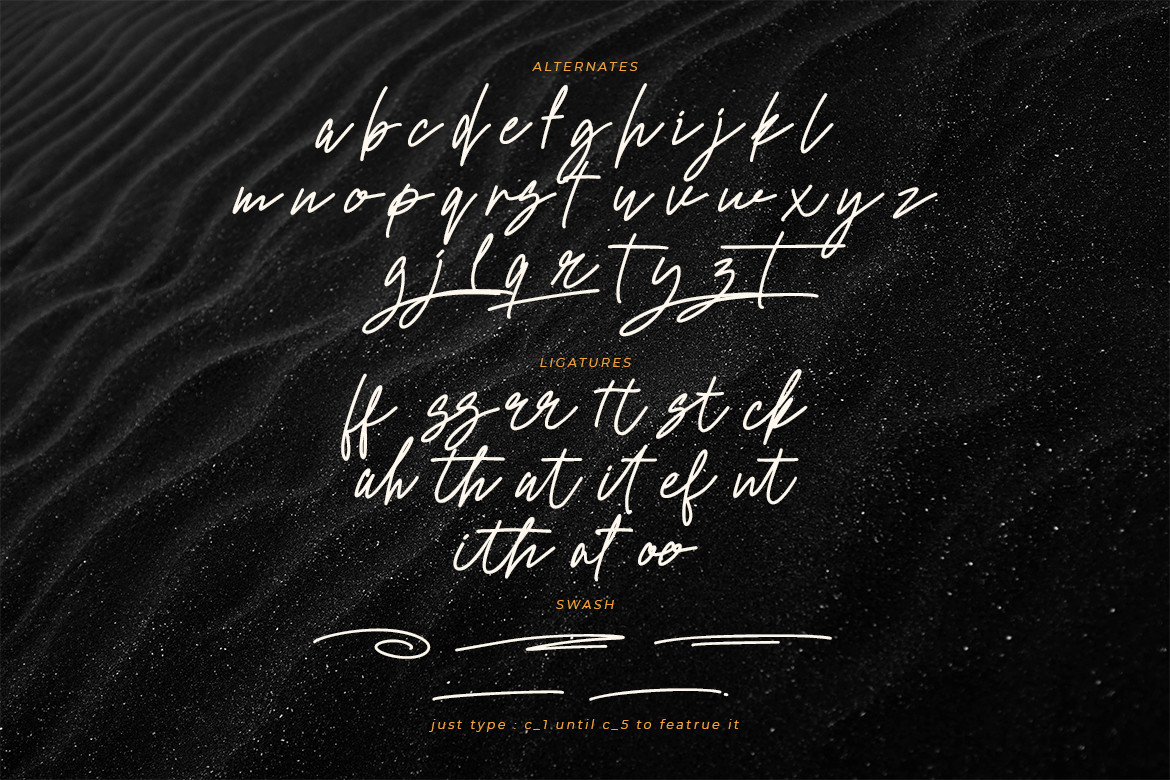 ALTERNATES
a b c d e f g h i j k l
m n o p q r s t u v w x y z
g j l q r t y z t
LIGATURES
ff ss rr tt st ck
ah th at it ef nt
ith at oo
SWASH
just type : c_1 until c_5 to featrue it